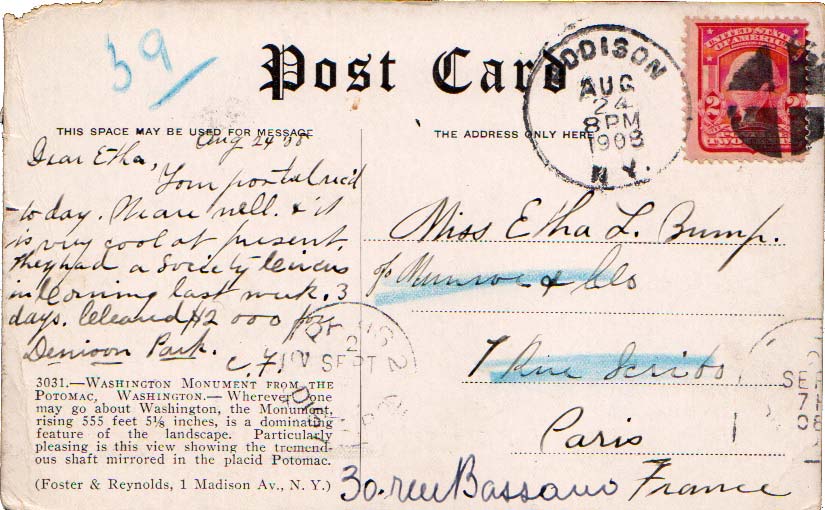 39
Post Card
ADDISON
AUG
24
8PM
1908
N.Y.
UNITED STATES
OF AMERICA
2 2
THIS SPACE MAY BE USED FOR MESSAGE
THE ADDRESS ONLY HERE
Aug 24 '08
Dear Etha,
Your postal rec'd
to day. We are well. & it
is very cool at present.
They had a Society Circus
in Corning last week. 3
days. Cleared $2 000 for
Denison Park.
C. F.
Miss Etha L. Bump.
c/o Munroe & Co
7 Rue Scribe
Paris
30. rue Bassano France
PARIS
SEPT
2
SEP
7
08
3031.—WASHINGTON MONUMENT FROM THE
POTOMAC, WASHINGTON.— Wherever one
may go about Washington, the Monument,
rising 555 feet 5⅛ inches, is a dominating
feature of the landscape. Particularly
pleasing is this view showing the tremend-
ous shaft mirrored in the placid Potomac.
(Foster & Reynolds, 1 Madison Av., N. Y.)